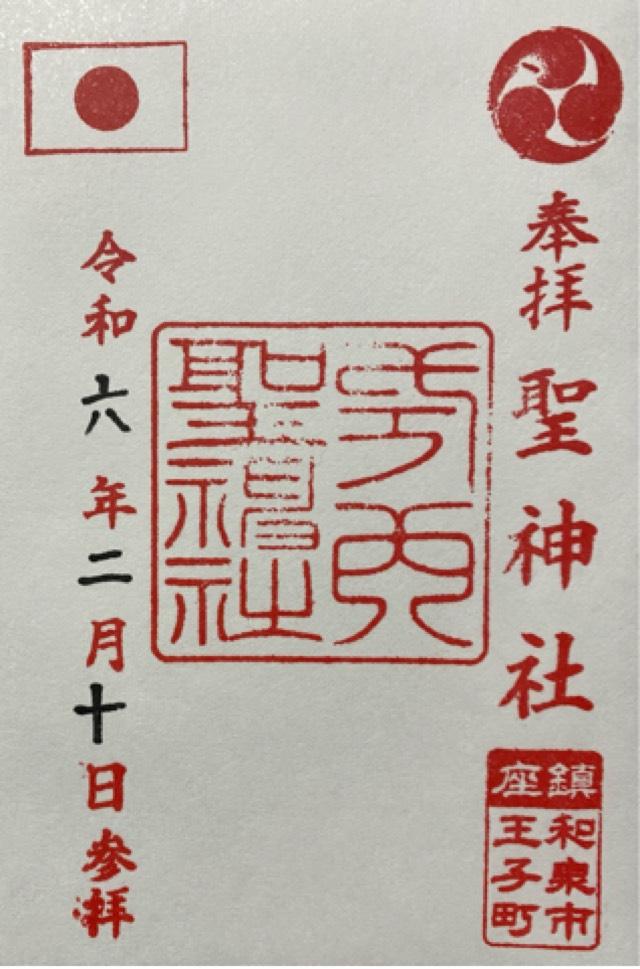 奉拝 聖神社
鎮座
和泉市
王子町
式内
聖神社
令和六年二月十日参拝